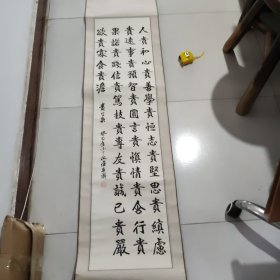 人貴和心貴善學貴恒志貴堅思貴縝慮
貴遠事貴預智貴圓言貴慎情貴含行貴
果諾貴踐信貴篤技貴專友貴誠己貴嚴
欲貴寡食貴澹